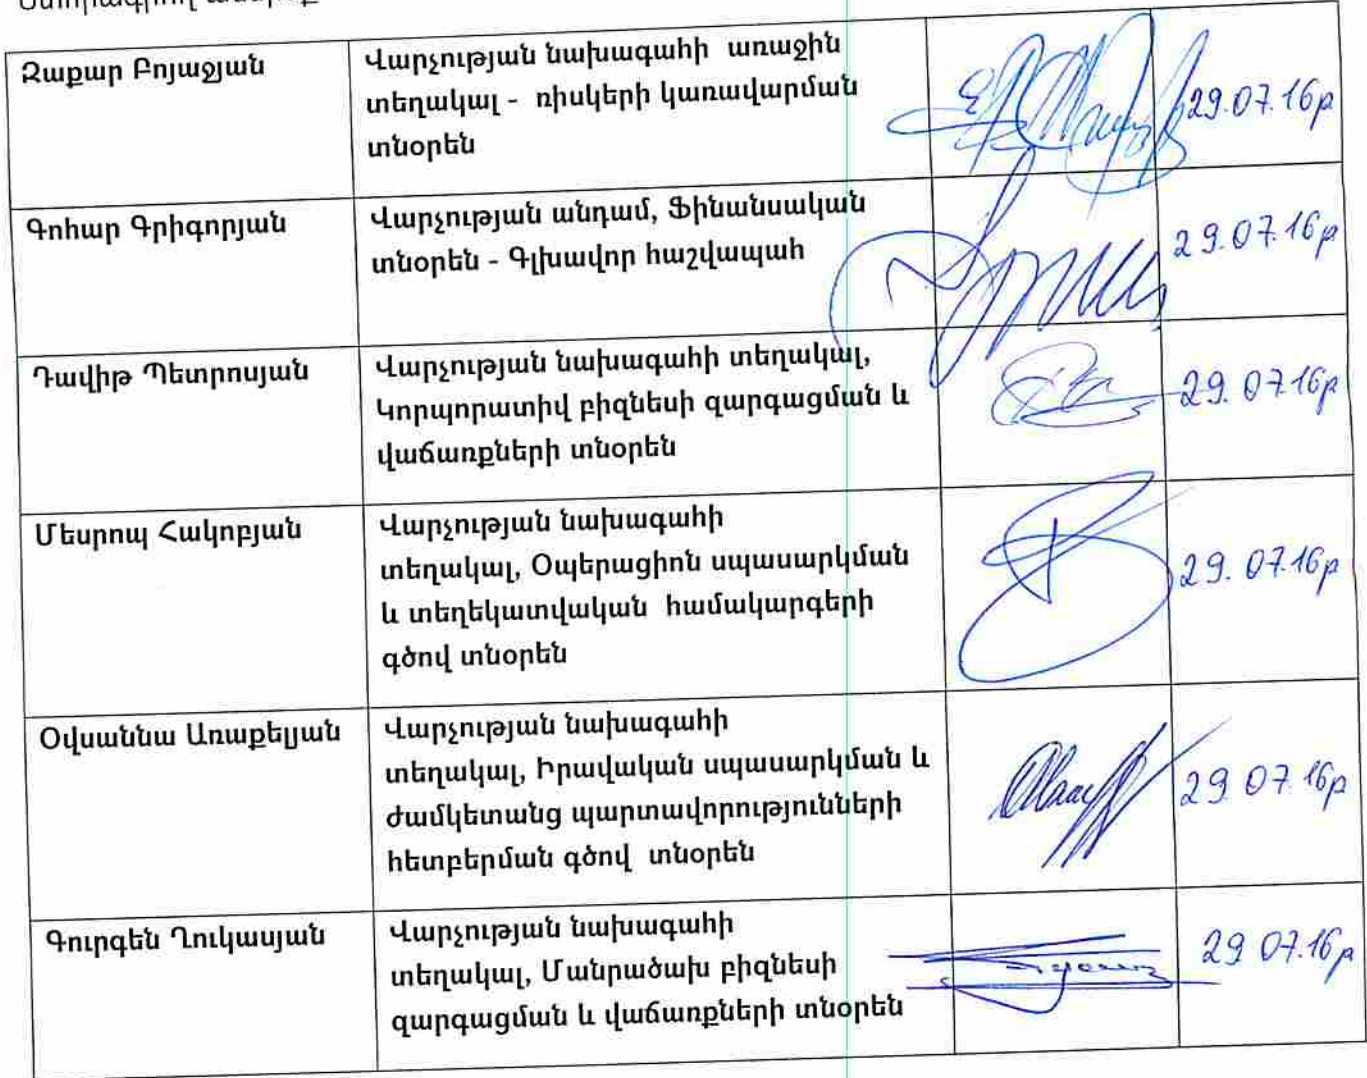 Զաքար Բոյաջյան
Վարչության նախագահի առաջին
տեղակալ - ռիսկերի կառավարման
տնօրեն
29.07.16թ
Գոհար Գրիգորյան
Վարչության անդամ, Ֆինանսական
տնօրեն - Գլխավոր հաշվապահ
29.07.16թ
Դավիթ Պետրոսյան
Վարչության նախագահի տեղակալ,
Կորպորատիվ բիզնեսի զարգացման և
վաճառքների տնօրեն
29.07.16թ
Մեսրոպ Հակոբյան
Վարչության նախագահի
տեղակալ, Օպերացիոն սպասարկման
և տեղեկատվական համակարգերի
գծով տնօրեն
29.07.16թ
Օվսաննա Առաքելյան
Վարչության նախագահի
տեղակալ, Իրավական սպասարկման և
ժամկետանց պարտավորությունների
հետբերման գծով տնօրեն
29 07.16թ
Գուրգեն Ղուկասյան
Վարչության նախագահի
տեղակալ, Մանրածախ բիզնեսի
զարգացման և վաճառքների տնօրեն
29 07.16թ